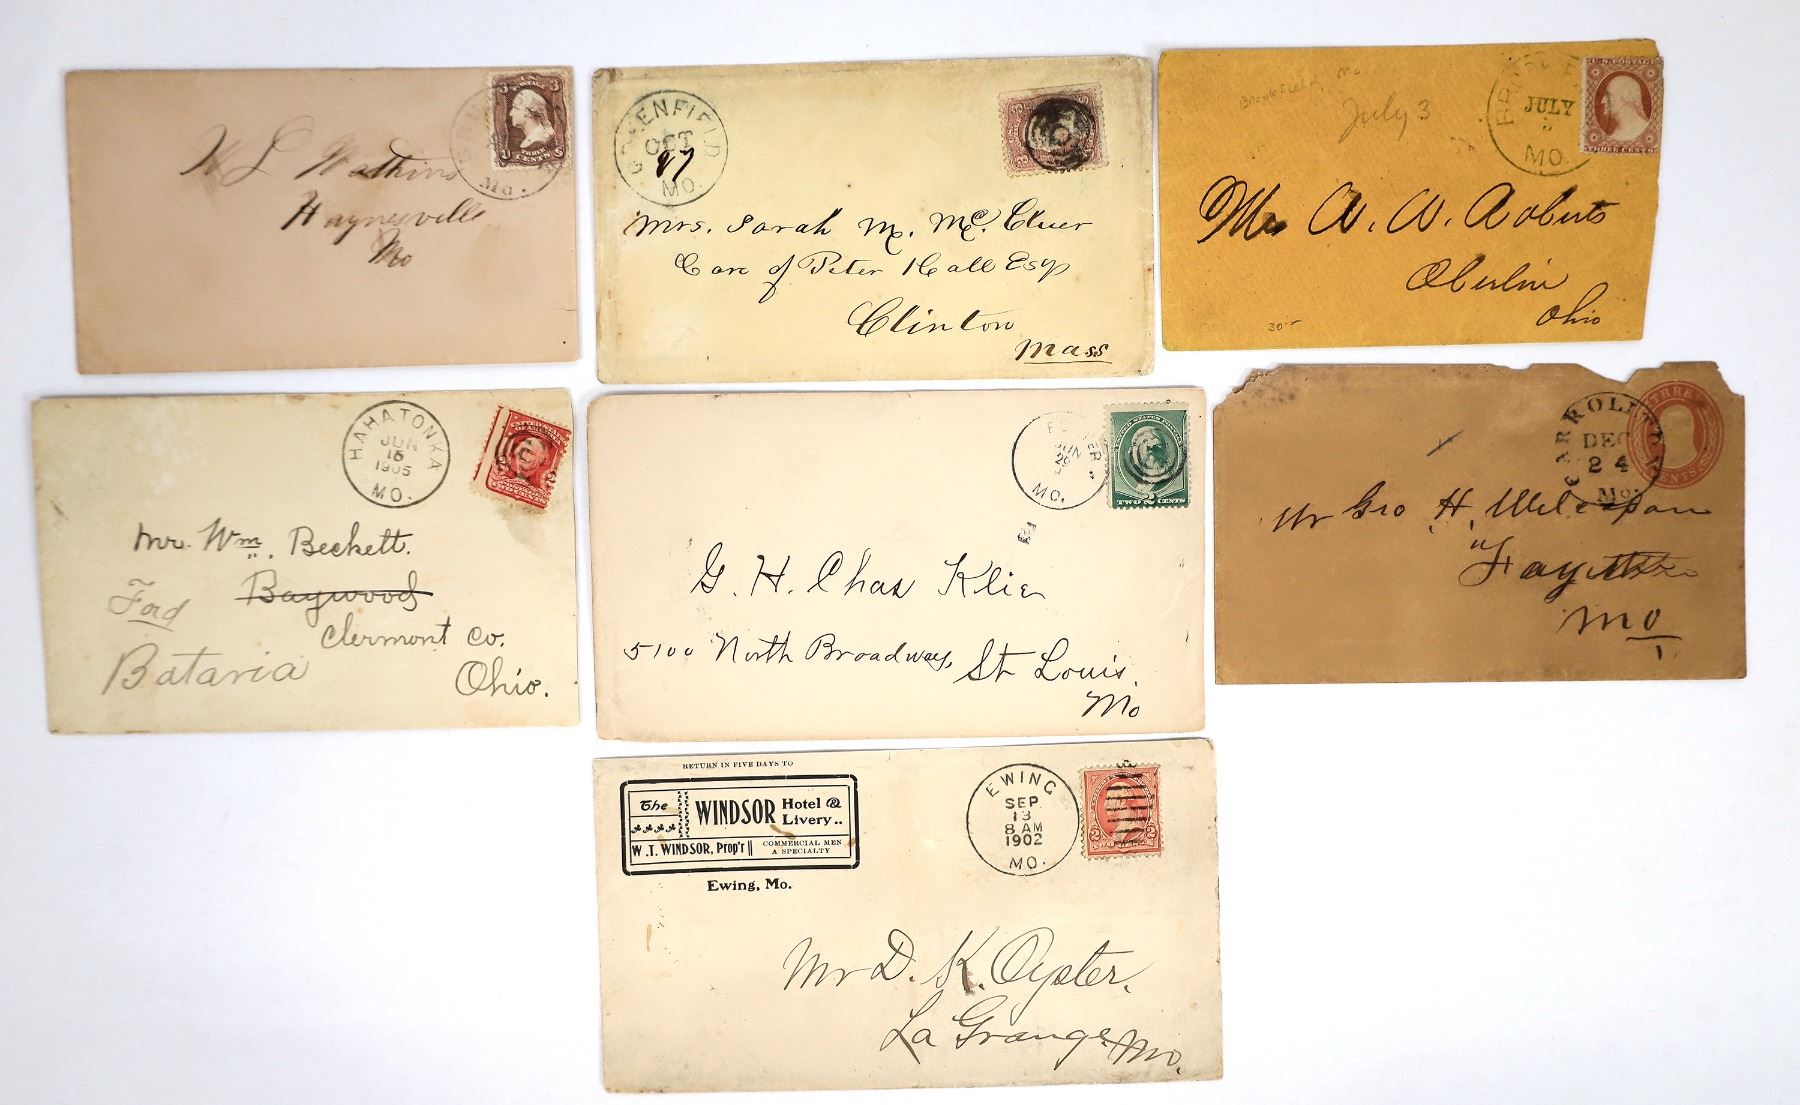 3 U.S. 3
POSTAGE
THREE
U CENTS S
Mo.
W L Watkins
Haynesville
Mo
GREENFIELD
OCT
27
MO.
Mrs. Sarah M. Mc. Cluer
Care of Peter Hall Esqr
Clinton
Mass
Brookfield, Mo
July 3
JULY
MO.
U.S. POSTAGE
THREE CENTS
Mr A. W. Roberts
Oberlin
Ohio
30--
HAHATONKA
JUN
16
1905
MO.
UNITED STATES
OF AMERICA
TWO CENTS
Mr. Wm. Beckett.
Baywood
Ford
Clermont Co.
Batavia
Ohio.
JUN
29
MO.
UNITED STATES POSTAGE
TWO 2 CENTS
G. H. Chas Klie
5100 North Broadway, St Louis,
Mo
CARROLLTON
DEC
24
Mo.
THREE
CENTS
Mr Geo H. Fayette
Mo
RETURN IN FIVE DAYS TO
The WINDSOR Hotel & Livery..
W.T. WINDSOR, Prop'r COMMERCIAL MEN A SPECIALTY
Ewing, Mo.
EWING
SEP
13
8 AM
1902
MO.
Mr D. K. Oyster,
La Grange, Mo.